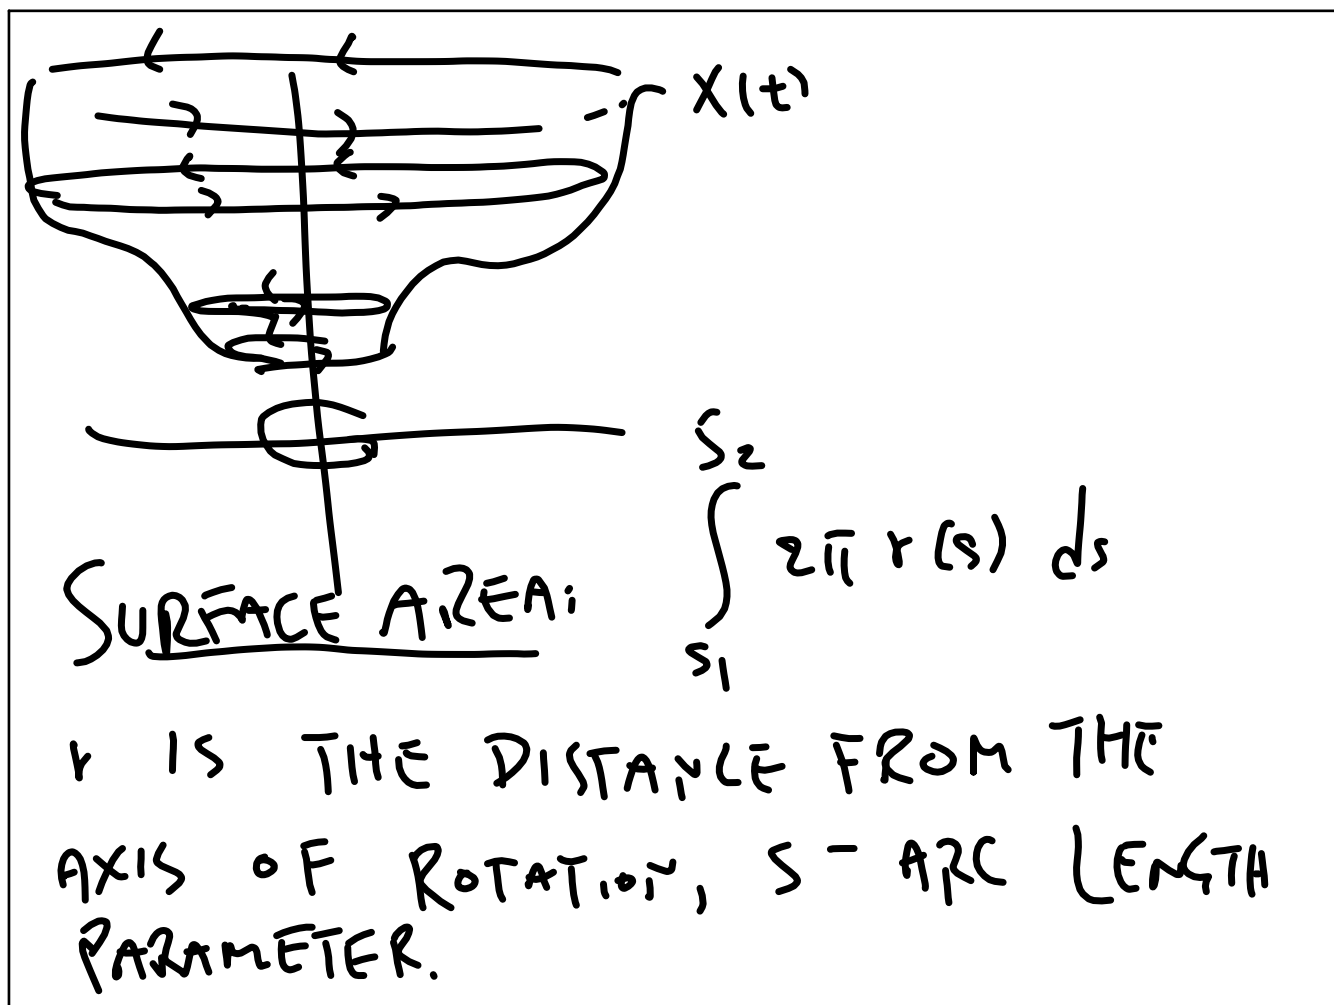 X(t)
SURFACE AREA: ∫_{s_1}^{s_2} 2π r(s) ds
r IS THE DISTANCE FROM THE
AXIS OF ROTATION, S - ARC LENGTH
PARAMETER.